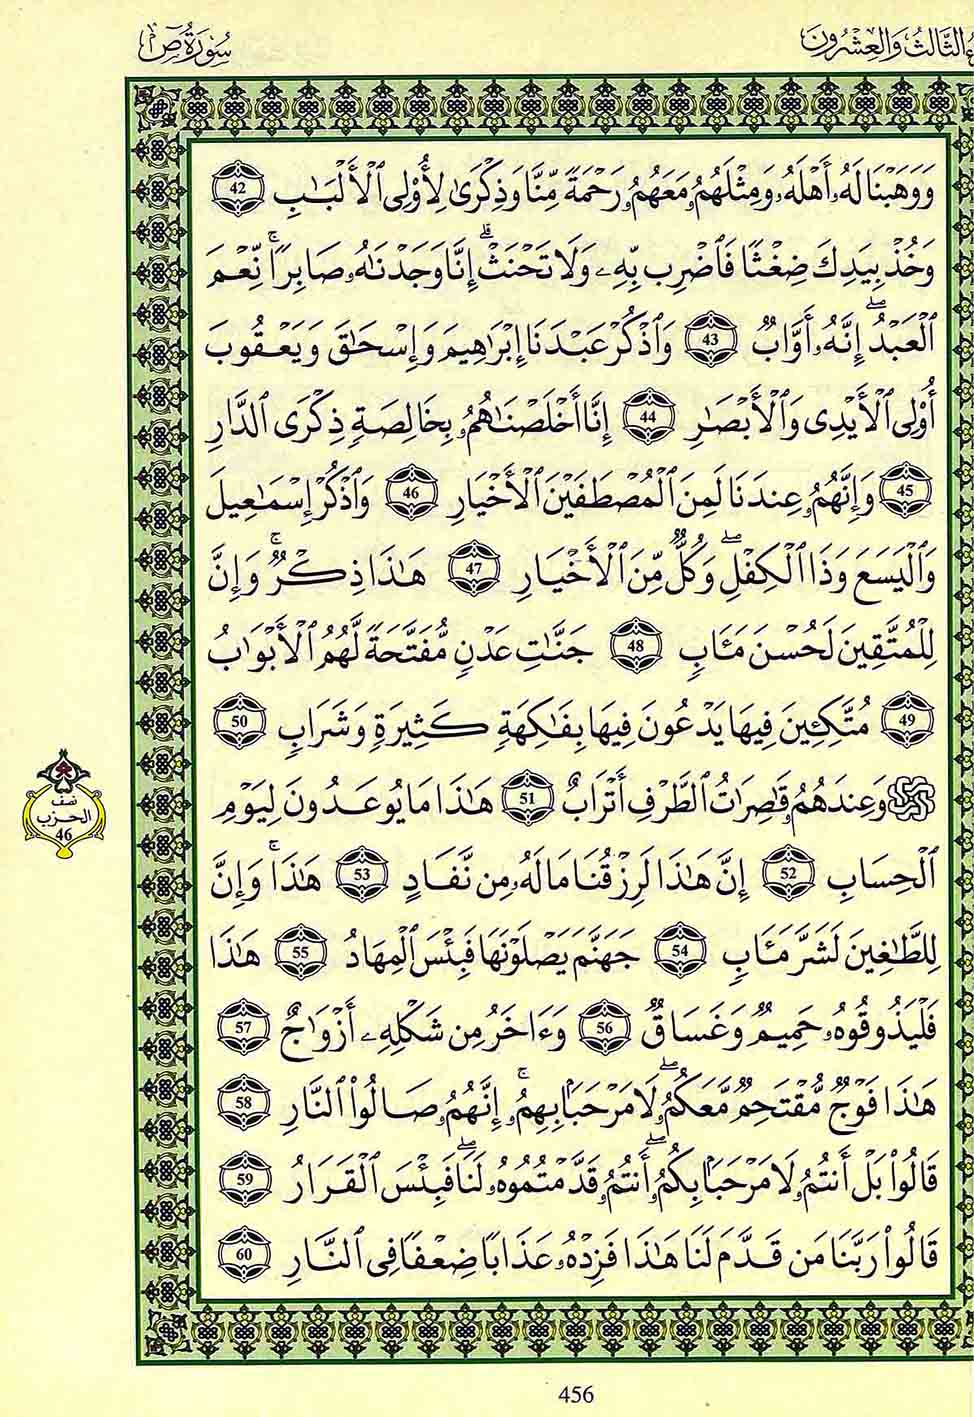 الثَّالِثُ وَالْعِشْرُونَ
سُورَةُ صٓ
وَوَهَبْنَا لَهُۥ أَهْلَهُۥ وَمِثْلَهُمُۥ مَعَهُمُۥ رَحْمَةً مِّنَّا وَذِكْرَىٰ لِأُوْلِى ٱلْأَلْبَٰبِ 42
وَخُذْ بِيَدِكَ ضِغْثًا فَٱضْرِب بِّهِۦ وَلَا تَحْنَثْ ۗ إِنَّا وَجَدْنَٰهُۥ صَابِرًا ۚ نِّعْمَ
ٱلْعَبْدُ ۖ إِنَّهُۥ أَوَّابٌ 43 وَٱذْكُرْ عَبْدَنَا إِبْرَاهِيمَ وَإِسْحَاقَ وَيَعْقُوبَ
أُوْلِى ٱلْأَيْدِى وَٱلْأَبْصَٰرِ 44 إِنَّا أَخْلَصْنَاهُمُۥ بِخَالِصَةٍ ذِكْرَى ٱلدَّارِ
45 وَإِنَّهُمُۥ عِندَنَا لَمِنَ ٱلْمُصْطَفَيْنَ ٱلْأَخْيَارِ 46 وَٱذْكُرْ إِسْمَٰعِيلَ
وَٱلْيَسَعَ وَذَا ٱلْكِفْلِ ۖ وَكُلٌّ مِّنَ ٱلْأَخْيَارِ 47 هَٰذَا ذِكْرٌ ۚ وَإِنَّ
لِلْمُتَّقِينَ لَحُسْنَ مَـَٔابٍ 48 جَنَّٰتِ عَدْنٍ مُّفَتَّحَةً لَّهُمُ ٱلْأَبْوَابُ
49 مُتَّكِـِٔينَ فِيهَا يَدْعُونَ فِيهَا بِفَٰكِهَةٍ كَثِيرَةٍ وَشَرَابٍ 50
نصف
الحزب
46
۞ وَعِندَهُمُۥ قَٰصِرَاتُ ٱلطَّرْفِ أَتْرَابٌ 51 هَٰذَا مَا يُوعَدُونَ لِيَوْمِ
ٱلْحِسَابِ 52 إِنَّ هَٰذَا لَرِزْقُنَا مَا لَهُۥ مِن نَّفَادٍ 53 هَٰذَا ۚ وَإِنَّ
لِلطَّٰغِينَ لَشَرَّ مَـَٔابٍ 54 جَهَنَّمَ يَصْلَوْنَهَا فَبِئْسَ ٱلْمِهَادُ 55 هَٰذَا
فَلْيَذُوقُوهُۥ حَمِيمٌ وَغَسَاقٌ 56 وَءَاخَرُ مِن شَكْلِهِۦ أَزْوَٰجٌ 57
هَٰذَا فَوْجٌ مُّقْتَحِمٌ مَّعَكُمُۥ ۖ لَا مَرْحَبًۢا بِهِمُۥ ۚ إِنَّهُمُۥ صَالُوا۟ ٱلنَّارِ 58
قَالُوا۟ بَلْ أَنتُمُۥ لَا مَرْحَبًۢا بِكُمُۥ ۖ أَنتُمُۥ قَدَّمْتُمُوهُۥ لَنَا ۖ فَبِئْسَ ٱلْقَرَارُ 59
قَالُوا۟ رَبَّنَا مَن قَدَّمَ لَنَا هَٰذَا فَزِدْهُۥ عَذَابًا ضِعْفًا فِى ٱلنَّارِ 60
456